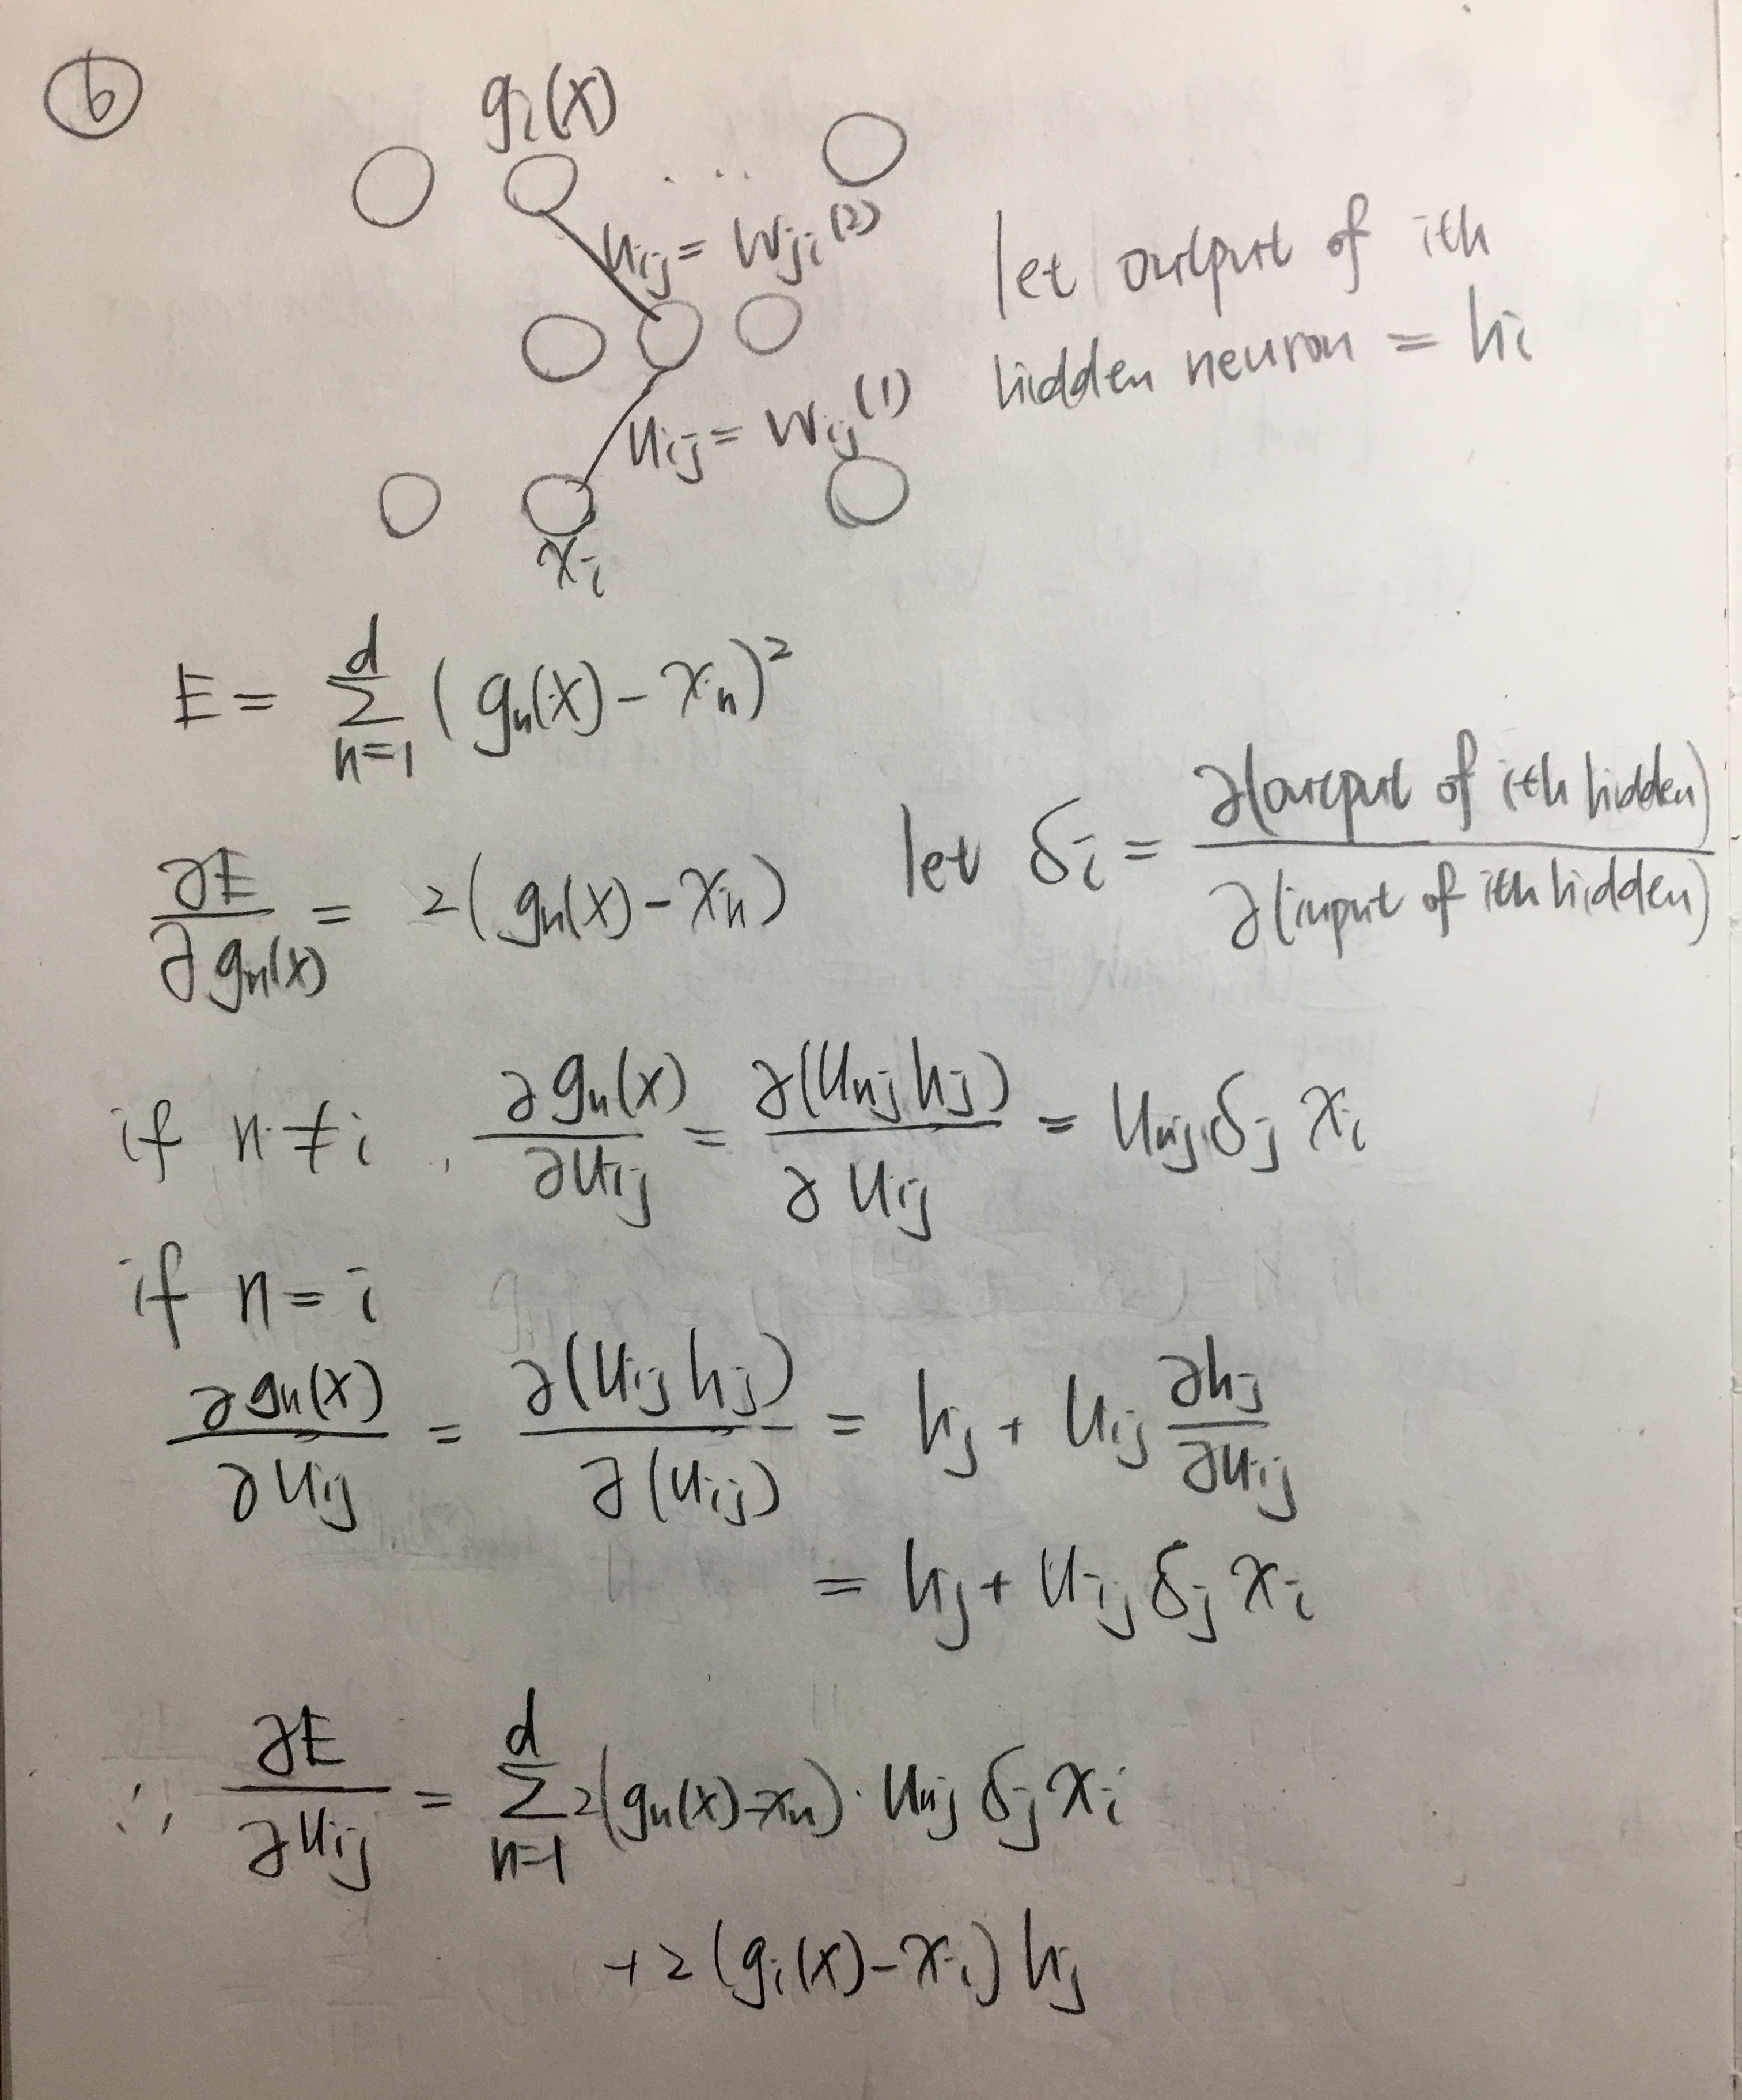 6
gᵢ(x)
. . . .
uᵢⱼ = wⱼᵢ⁽²⁾
let output of ith
hidden neuron = hᵢ
uᵢⱼ = wᵢⱼ⁽¹⁾
xᵢ
E = \sum_{n=1}^{d} (g_n(x) - x_n)^2
\frac{∂E}{∂g_n(x)} = 2(g_n(x) - x_n)
let δ_i = \frac{∂(output of ith hidden)}{∂(input of ith hidden)}
if n ≠ i, \frac{∂g_n(x)}{∂u_{ij}} = \frac{∂(u_{nj} h_j)}{∂u_{ij}} = u_{nj} δ_j x_i
if n = i
\frac{∂g_n(x)}{∂u_{ij}} = \frac{∂(u_{ij} h_j)}{∂(u_{ij})} = h_j + u_{ij} \frac{∂h_j}{∂u_{ij}}
= h_j + u_{ij} δ_j x_i
∴ \frac{∂E}{∂u_{ij}} = \sum_{n=1}^{d} 2(g_n(x) - x_n) · u_{nj} δ_j x_i
+ 2(g_i(x) - x_i) h_j